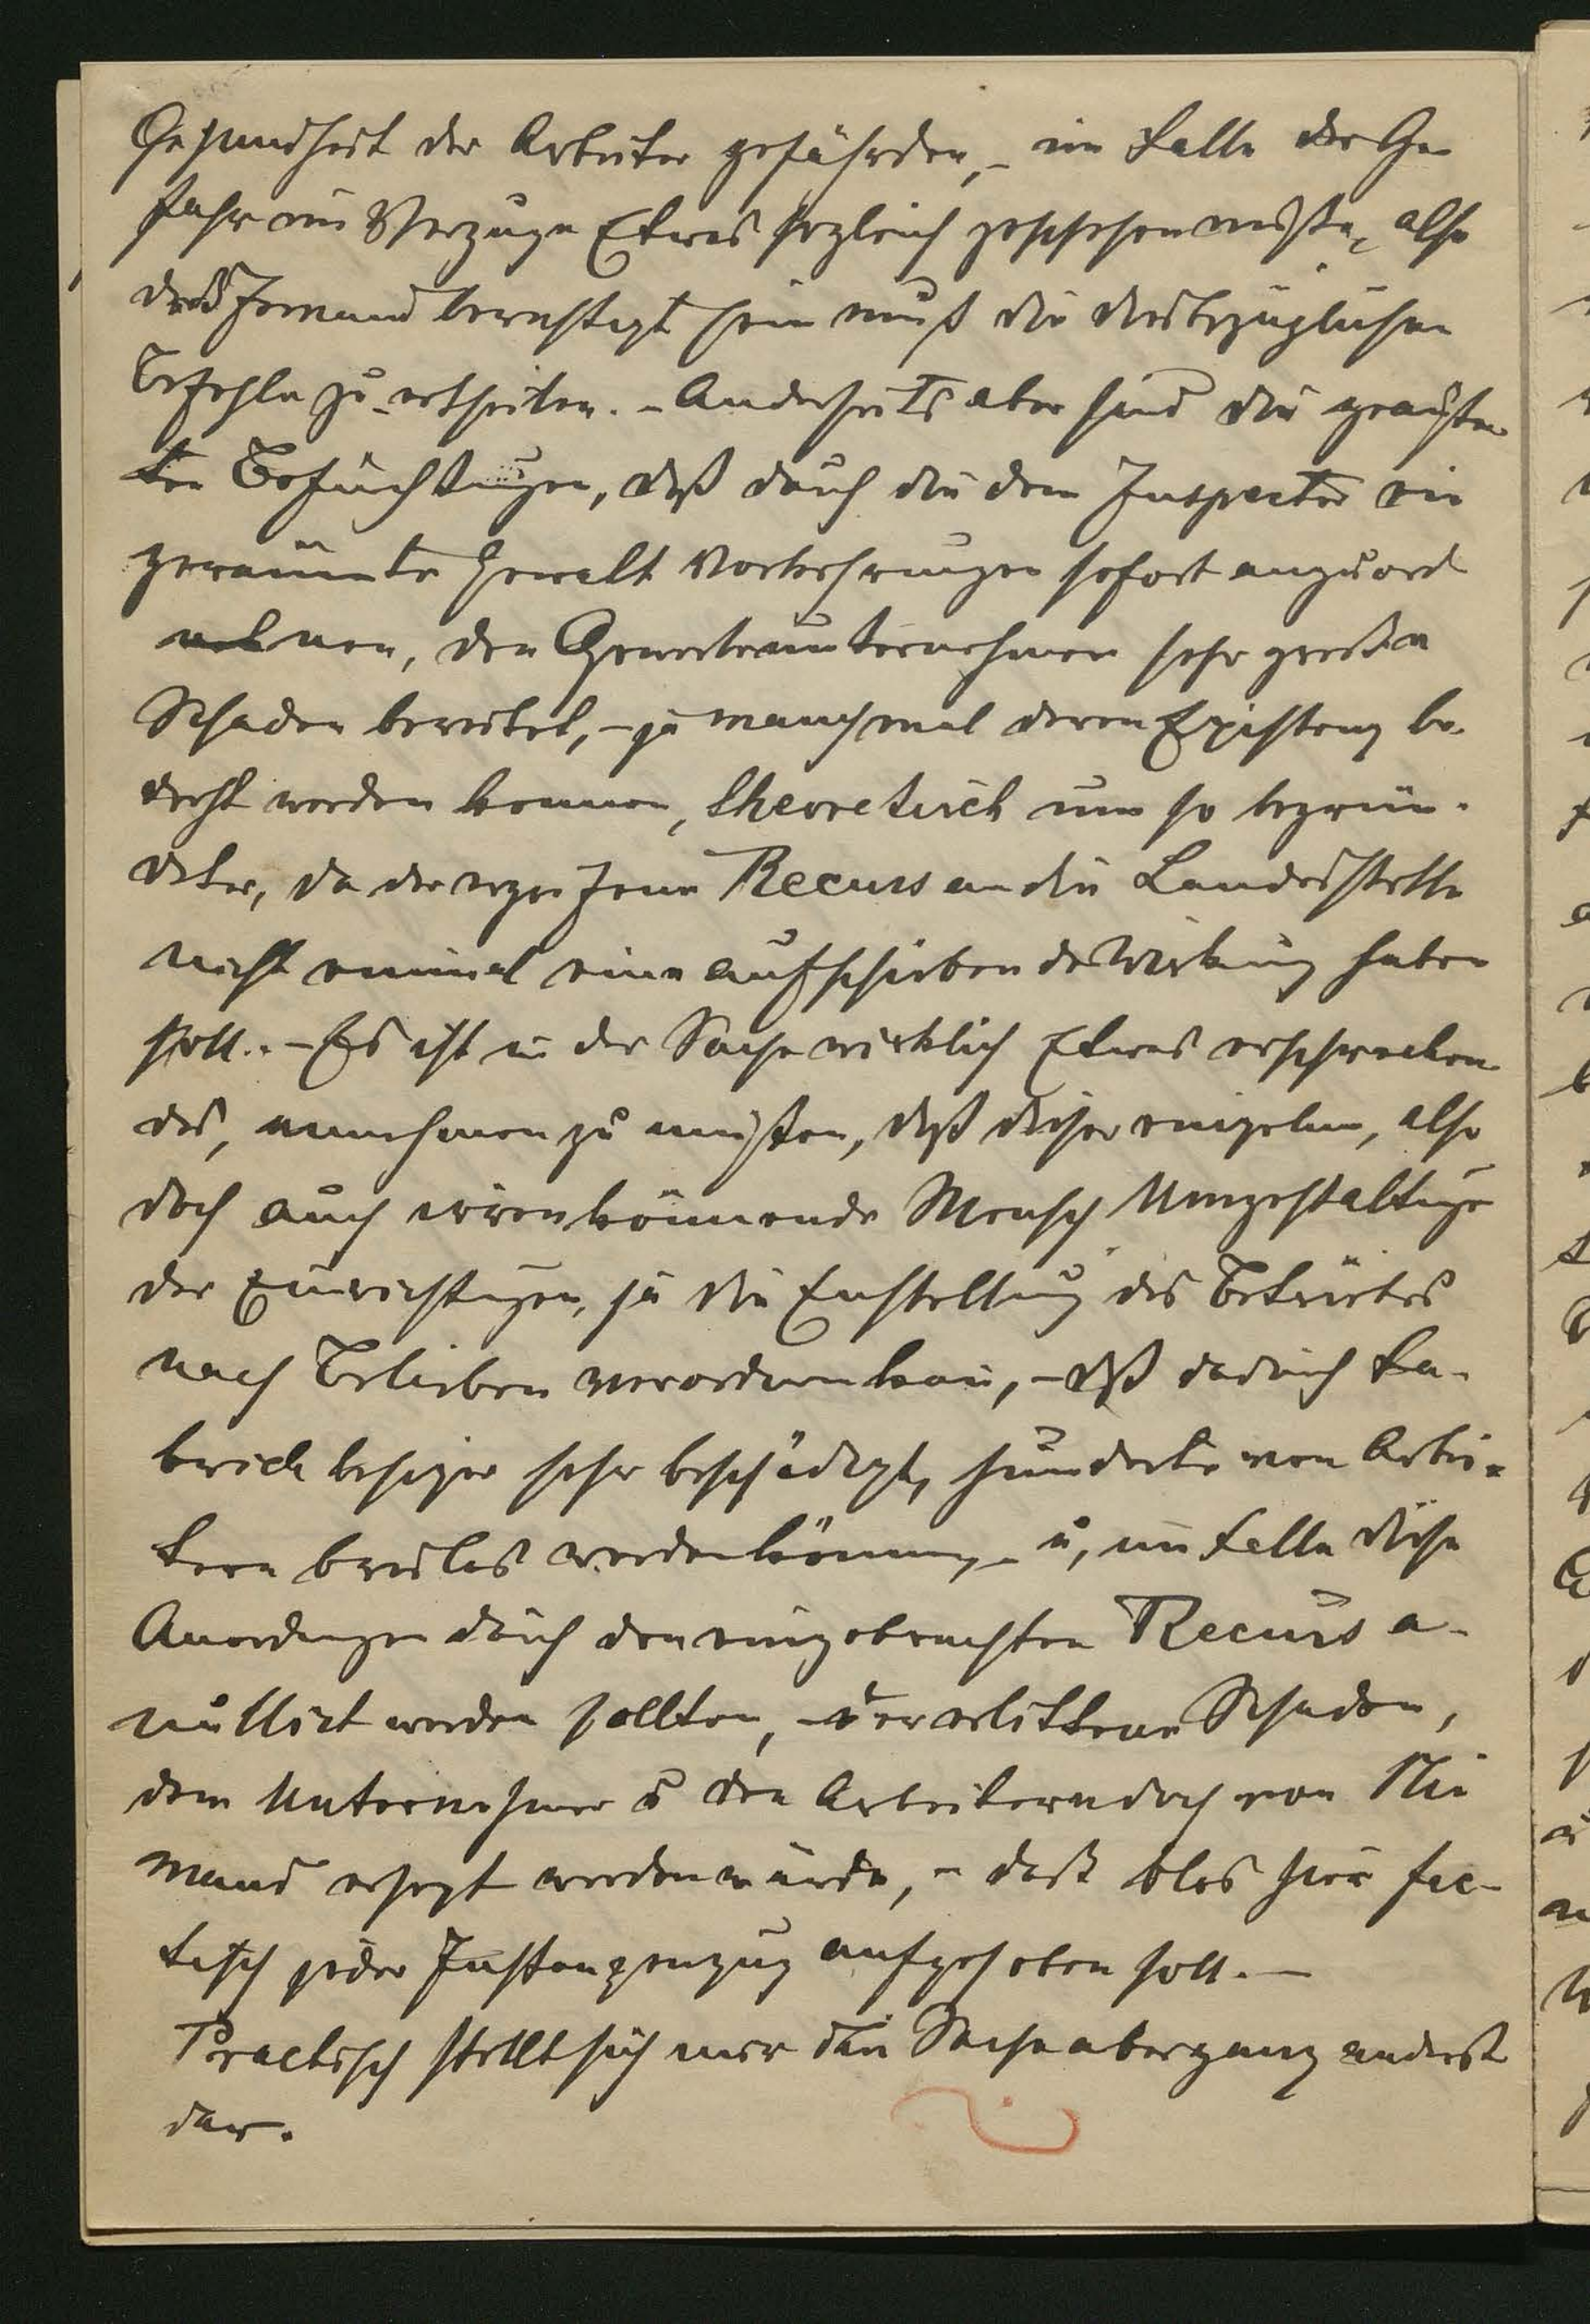 Gesundheit der Arbeiter gefährden, – im Falle der Ge-
fahr im Verzuge Etwas sogleich geschehen müsse, also
daß Jemand berechtigt sein muß die diesbezüglichen
Befehle zu ertheilen. – Anderseits aber sind die geäußer-
ten Befüchtungen, daß durch die dem Inspector ein
geräumte Gewalt Vorkehrungen sofort anzuord
nen, den Gewerbeunternehmern sehr großen
Schaden bereitet, – ja manchmal deren Existenz be-
droht werden können, theoretisch um so begrün-
deter, da der ergriffene Recurs an die Landesstelle
nicht einmal eine aufschiebende Wirkung haben
soll. – Es ist in der Sache wirklich Etwas erschrecken-
des, annehmen zu müssen, daß dieser einzelne, also
doch auch irren könnende Mensch Umgestaltung
der Einrichtungen, ja die Einstellung des Betriebes
nach Belieben verordnen kann, – daß dadurch Fa-
brick besitzer sehr beschädigt, hunderte von Arbei-
tern brodlos werden können, – u, im Falle diese
Anordnungen durch den eingebrachten Recurs a-
nullirt werden sollten, – der erlittene Schaden,
dem Unternehmer u den Arbeitern doch von Nie
mand ersetzt werden würde, – daß blos hier fac-
tisch jeder Instanzenzug aufgehoben soll. –
Practisch stellt sich mir die Sache aber ganz anders
dar.